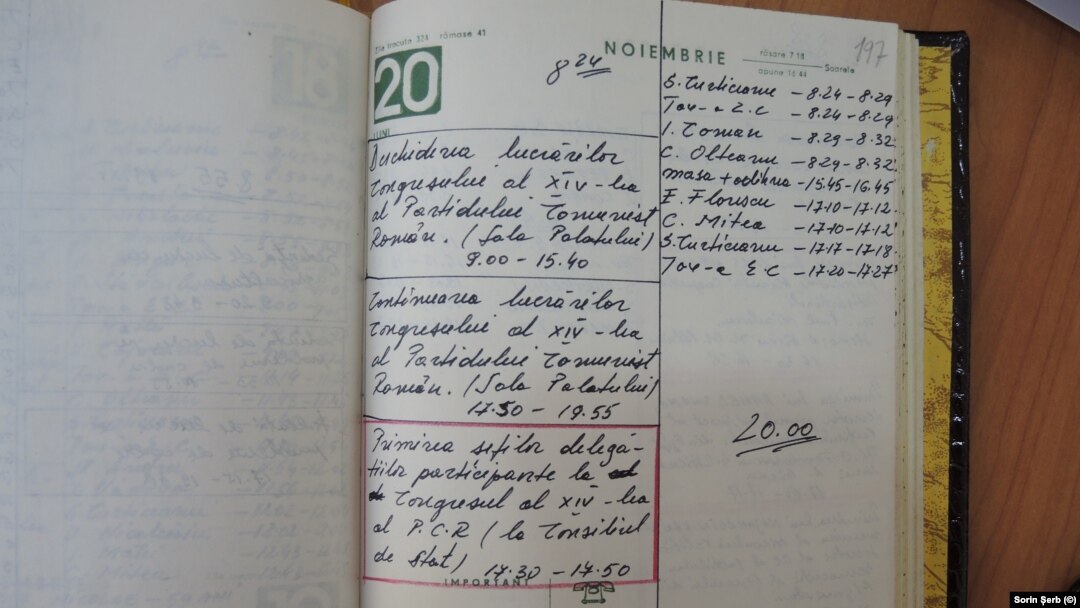 Zile trecute 324 rămase 41
20
LUNI
NOIEMBRIE
răsare 7 18
apune 16 44
Soarele
197
8 24
Deschiderea lucrărilor
Congresului al XIV-lea
al Partidului Comunist
Român. (Sala Palatului)
9.00 – 15.40
Continuarea lucrărilor
Congresului al XIV-lea
al Partidului Comunist
Român. (Sala Palatului)
17.50 – 19.55
Primirea șefilor delega-
țiilor participante la
Congresul al XIV-lea
al P.C.R (la Consiliul
de Stat) 17.30 – 17.50
IMPORTANT
S. Curticeanu – 8.24 – 8.29
Tov-a E.C – 8.24 – 8.29
I. Coman – 8.29 – 8.32
C. Olteanu – 8.29 – 8.32
masa + odihna – 15.45 – 16.45
E. Florescu – 17.10 – 17.12
C. Mitea – 17.10 – 17.12
S. Curticeanu – 17.17 – 17.18
Tov-a E.C – 17.20 – 17.27
20.00
Sorin Șerb (©)